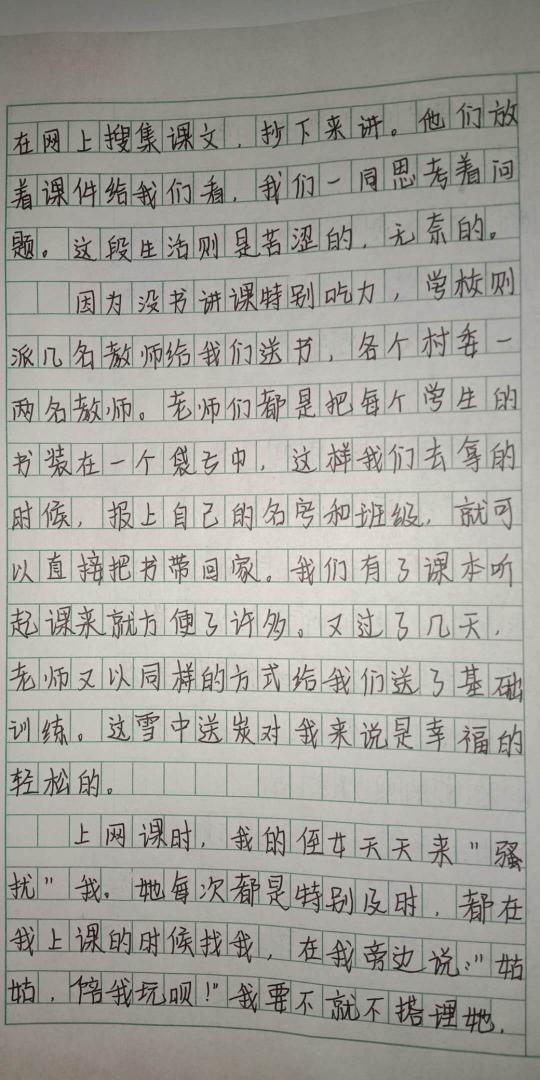 在网上搜集课文，抄下来讲。他们放
着课件给我们看，我们一同思考着问
题。这段生活则是苦涩的，无奈的。
因为没书讲课特别吃力，学校则
派几名教师给我们送书，各个村委一
两名教师。老师们都是把每个学生的
书装在一个袋子中，这样我们去拿的
时候，报上自己的名字和班级，就可
以直接把书带回家。我们有了课本听
起课来就方便了许多。又过了几天，
老师又以同样的方式给我们送了基础
训练。这雪中送炭对我来说是幸福的
轻松的。
上网课时，我的侄女天天来"骚
扰"我。她每次都是特别及时，都在
我上课的时候找我，在我旁边说："姑
姑，陪我玩呗！"我要不就不搭理她，